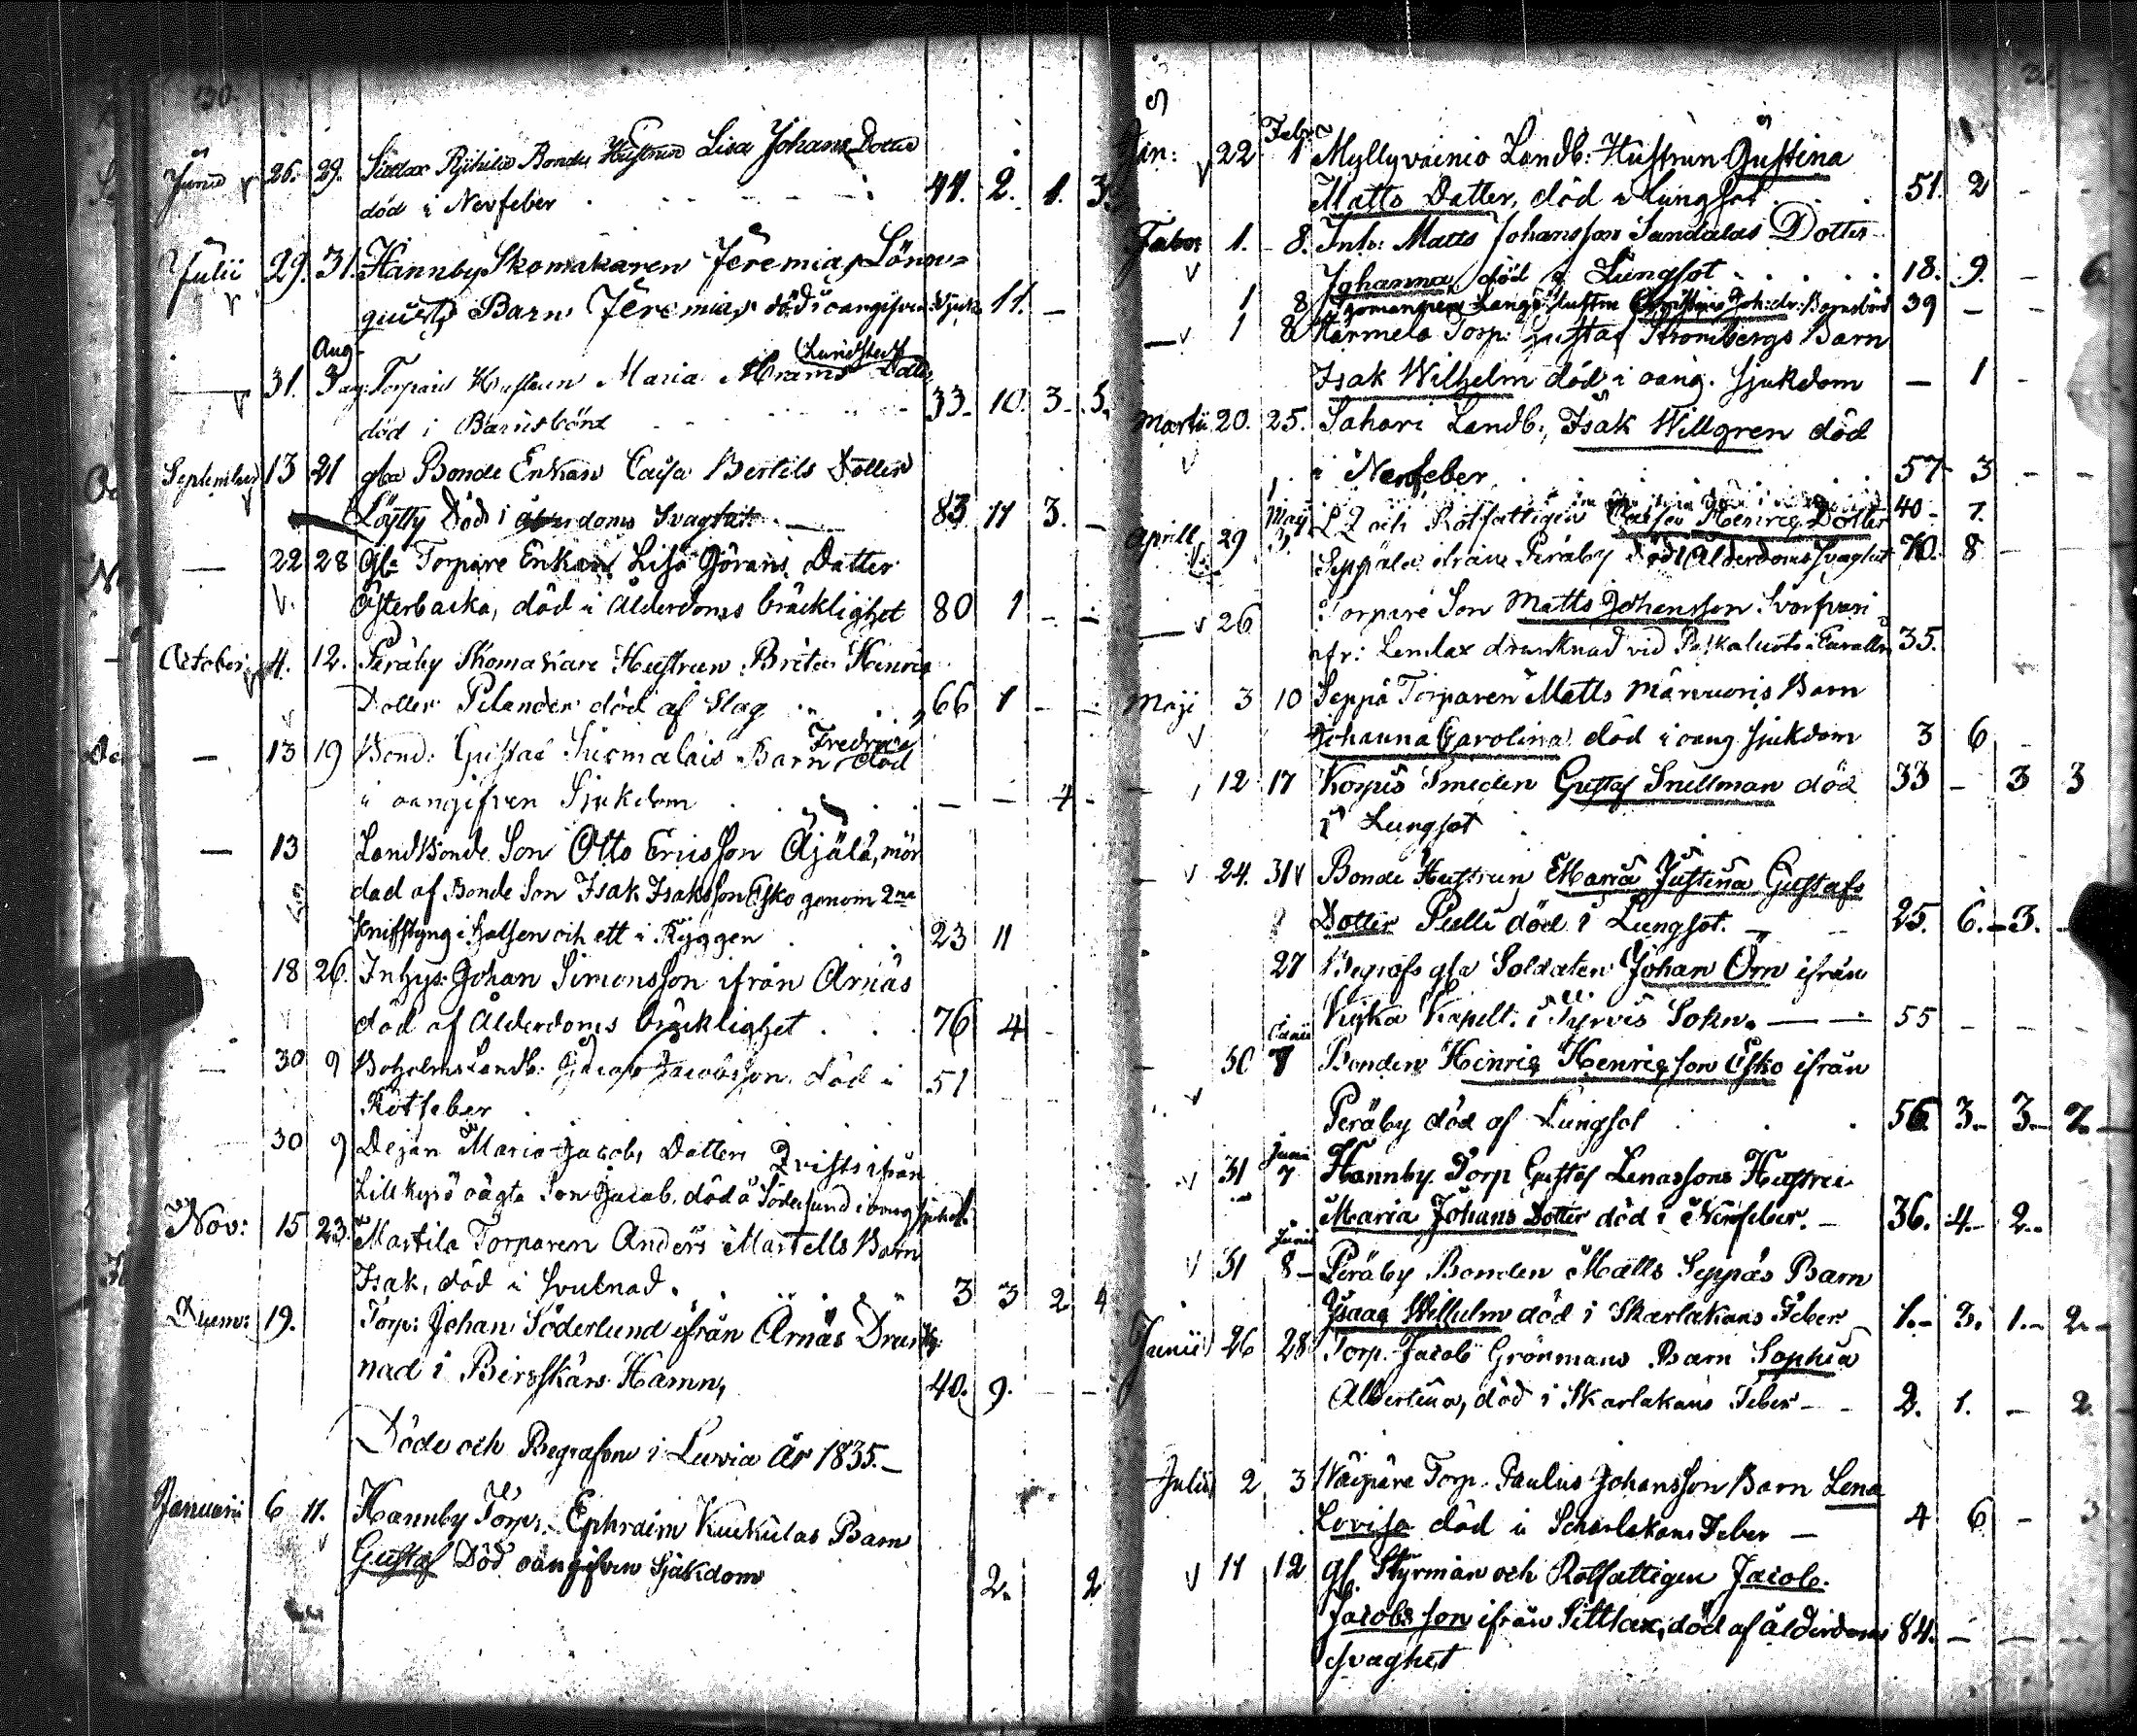 130
Junii 26. 29. Sidlax Bonde Hustrun Lisa Johans Dotter
död i Nerfeber 44. 2. 1. 3.
Julii 29. 31. Hannby Skomakaren Jeremias Lönn-
quists Barn Jeremias död i oangifven Sjukd. 11. –
Aug. Lundstedt
31. 3 Torpare Hustrun Maria Abrams Dotter
död i Barnsbörd 33. 10. 3. 5.
September 13 21 gla Bonde Enkan Caisa Bertils Dotter
Löytty Död i ålderdoms Svaghet 83. 11 3. –
22 28 Gla Torpare Enkan Lisa Görans Dotter
Österbacka, död i Ålderdoms bräcklighet 80 1 – –
October 4. 12. Peräby Skomakare Hustrun Brita Henrics
Dotter Pilander död af Slag 66 1 – –
Fredric
– 13 19 Bond. Gustaf Suomalais Barn död
i oangifven Sjukdom – – 4 –
– 13 Landbonde Son Otto Ericsson Äjälä, mör
dad af Bonde Son Isak Isaksson Esko genom 2ne
Knifstyng i halsen och ett i Ryggen 23 11
18 26. Inhys: Johan Simonsson ifrån Arnäs
död af Ålderdoms bräcklighet 76 4 –
– 30 9 Boholms Landb: Jacob Jacobsson död i 51
Rötfeber
30 9 Dejan Maria Jacobs Dotter Qvists ifrån
Lillkyrö oägta Son Jacob. död å Söderlund i oang sjukd.
Nov: 15 23. Martila Torparen Anders Martells Barn
Isak, död i Svulnad. 3 3 2 4
Decem: 19. Torp: Johan Söderlund ifrån Arnäs Drunk-
nad i Hamn, 40. 9. – –
Döde och Begrafne i Luvia År 1835. –
Januarii 6 11. Hannby Torp: Ephraim Kuckulas Barn
Gustaf Död oangifven Sjukdom 2. 2
Jan: 22 Febr 1 Myllyvainio Landb: Hustrun Gustina
Matts Dotter, död i Lungsot 51. 2 –
Febr: 1. 8. Inh: Matts Johansson Sandalas Dotter
Johanna, död i Lungsot 18. 9. –
1 8 Hustru Christina Joh: dr: Barnsbörd 39 – –
1 8 Karmela Torp: Gustaf Strömbergs Barn
Isak Wilhelm död i oang. Sjukdom – 1 –
Martii 20. 25. Sahari Landb: Isak Willgren död
i Nerfeber 57 3 – –
Maij 40 – 7.
Aprill 29 3. och Rotfattigen Caisa Henrics Dotter
Seppälä ifrån Peräby död i Ålderdoms Svaghet 70. 8 –
– 26 Torpare Son Matts Johansson
ifr: Lemlax drunknad vid 35.
Maji 3 10 Seppä Torparen Matts Barn
Johanna Carolina död i oang Sjukdom 3 6 –
– 12 17 Korpis Smeden Gustaf Snellman död 33 – 3 3
i Lungsot
– 24. 31 Bonde Hustrun Maria Justina Gustafs
Dotter Pelli död i Lungsot. 25. 6. – 3. –
27 Begrofs gla Soldaten Johan Örn ifrån
Kapell. i Tyrvis Sokn. 55 – – –
Junii
30 7 Bonden Henric Henricsson Esko ifrån
Peräby död af Lungsot 56 3 – 3 – 2 –
Junii
31 7 Hannby Torp Gustaf Hustru
Maria Johans Dotter död i Nerfeber. – 36. 4. – 2. –
Junii
31 8 – Peräby Bonden Matts Seppäs Barn
Isaac Wilhelm död i Skarlakans Feber 1. – 3. 1. – 2. –
Junii 26 28 Torp. Jacob Grönmans Barn Sophia
Albertina, död i Skarlakans Feber – – 2. 1. – 2.
Julii 2 3 Torp. Paulus Johansson Barn Lena
Lovisa död i Scharlakans Feber – 4 6 – 3
11 12 gl. Styrman och Rotfattigen Jacob.
Jacobsson ifrån Sittlax, död af ålderdoms 84. – – –
svaghet